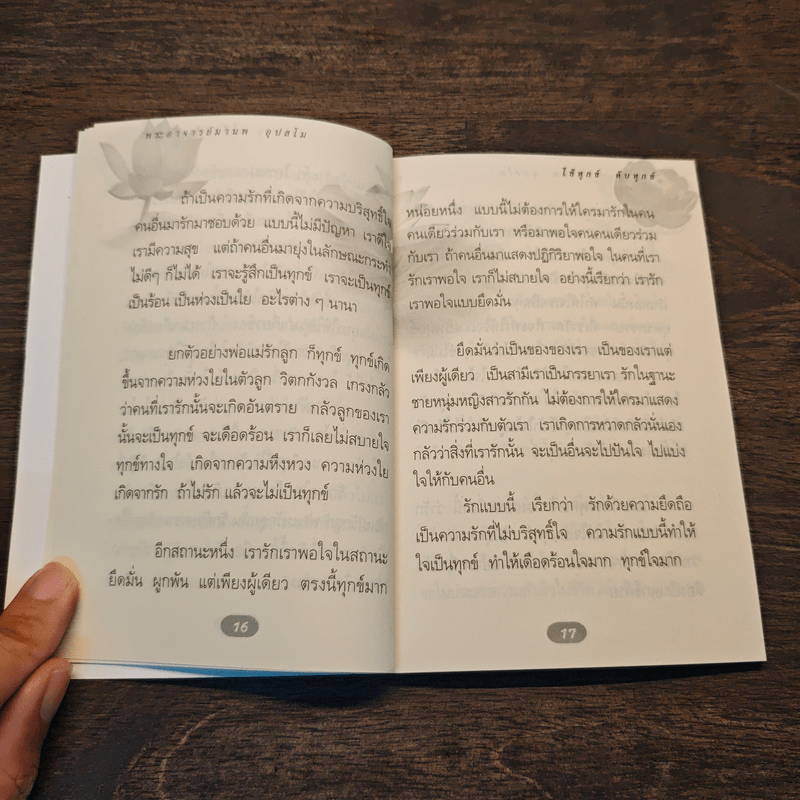 พระอาจารย์มานพ อุปสโม
ถ้าเป็นความรักที่เกิดจากความบริสุทธิ์ใจ
คนอื่นมารักมาชอบด้วย แบบนี้ไม่มีปัญหา เราดีใจ
เรามีความสุข แต่ถ้าคนอื่นมายุ่งในลักษณะกระทำ
ไม่ดีๆ ก็ไม่ได้ เราจะรู้สึกเป็นทุกข์ เราจะเป็นทุกข์
เป็นร้อน เป็นห่วงเป็นใย อะไรต่าง ๆ นานา
ยกตัวอย่างพ่อแม่รักลูก ก็ทุกข์ ทุกข์เกิด
ขึ้นจากความห่วงใยในตัวลูก วิตกกังวล เกรงกลัว
ว่าคนที่เรารักนั้นจะเกิดอันตราย กลัวลูกของเรา
นั้นจะเป็นทุกข์ จะเดือดร้อน เราก็เลยไม่สบายใจ
ทุกข์ทางใจ เกิดจากความหึงหวง ความห่วงใย
เกิดจากรัก ถ้าไม่รัก แล้วจะไม่เป็นทุกข์
อีกสถานะหนึ่ง เรารักเราพอใจในสถานะ
ยึดมั่น ผูกพัน แต่เพียงผู้เดียว ตรงนี้ทุกข์มาก
16
ใช้ทุกข์ ดับทุกข์
หน่อยหนึ่ง แบบนี้ไม่ต้องการให้ใครมารักในคน
คนเดียวร่วมกับเรา หรือมาพอใจคนคนเดียวร่วม
กับเรา ถ้าคนอื่นมาแสดงปฏิกิริยาพอใจ ในคนที่เรา
รักเราพอใจ เราก็ไม่สบายใจ อย่างนี้เรียกว่า เรารัก
เราพอใจแบบยึดมั่น
ยึดมั่นว่าเป็นของของเรา เป็นของเราแต่
เพียงผู้เดียว เป็นสามีเราเป็นภรรยาเรา รักในฐานะ
ชายหนุ่มหญิงสาวรักกัน ไม่ต้องการให้ใครมาแสดง
ความรักร่วมกับตัวเรา เราเกิดการหวาดกลัวนั่นเอง
กลัวว่าสิ่งที่เรารักนั้น จะเป็นอื่นจะไปปันใจ ไปแบ่ง
ใจให้กับคนอื่น
รักแบบนี้ เรียกว่า รักด้วยความยึดถือ
เป็นความรักที่ไม่บริสุทธิ์ใจ ความรักแบบนี้ทำให้
ใจเป็นทุกข์ ทำให้เดือดร้อนใจมาก ทุกข์ใจมาก
17